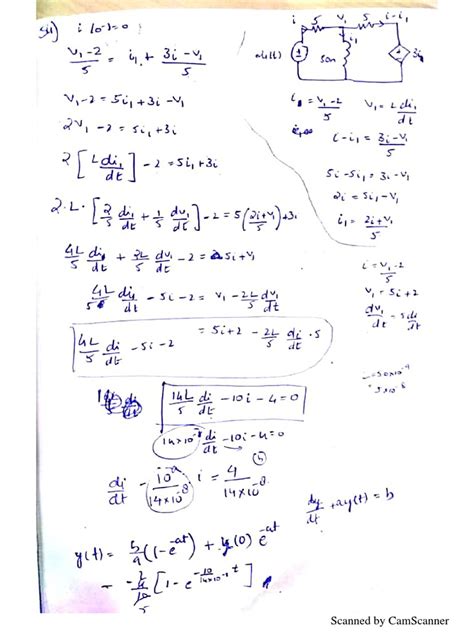 i (0-) = 0
(v1-2)/5 = i1 + (3i-v1)/5
v1-2 = 5i1+3i-v1
2v1-2 = 5i1+3i
2[L di1/dt] -2 = 5i1+3i
2·L·[2/5 di/dt + 1/5 dv1/dt] -2 = 5((2i+v1)/5)+3i
4L/5 di/dt + 2L/5 dv1/dt -2 = 5i+v1
4L/5 di/dt -5i-2 = v1 - 2L/5 dv1/dt
4L/5 di/dt -5i-2 = 5i+2 - 2L/5 di/dt ·5
14L/5 di/dt -10i-4=0
14×10^-8 di/dt -10i-4=0
di/dt - 10/(14×10^-8) i = 4/(14×10^-8)
y(t) = b/a (1-e^-at) + y(0) e^-at
i 5 v1 5 i-i1
i1
50n
3i
v1 = L di1/dt
i-i1 = (3i-v1)/5
5i-5i1 = 3i-v1
2i = 5i1-v1
i1 = (2i+v1)/5
i = (v1-2)/5
v1 = 5i+2
dv1/dt = 5 di/dt
dy/dt + ay(t) = b
Scanned by CamScanner